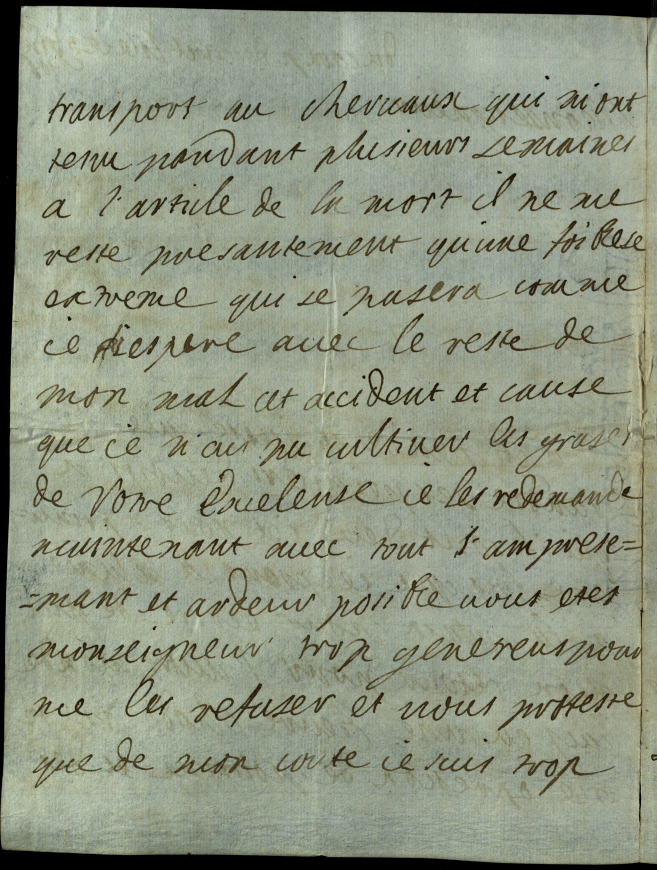 transport au cherueaux qui m ont
tenu pandant plusieurs semaines
a l'article de la mort il ne me
reste presantement qu'une foiblese
extreme qui se pasera comme
ie l'espere auec le reste de
mon mal cet accident et cause
que ie n'ai pu cultiuer les grases
de Votre Excelense ie les redemande
maintenant auec tout l'amprese=
=mant et ardeur posible uous etes
monseigneur trop genereus pour
me les refuser et uous proteste
que de mon coute ie suis trop